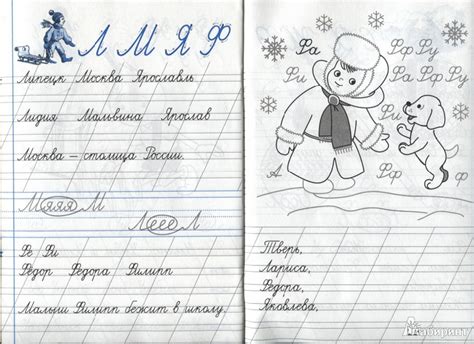 Л М Я Ф
Липецк Москва Ярославль
Лидия Мальвина Ярослав
Москва — столица России.
Мяяя М
Леее Л
Фе Фи
Фёдор Федора Филипп
Малыш Филипп бежит в школу.
Фа Фф Фу
Фи Фа Фф Фу
Фи
А Фф Ф
Ф
Тверь,
Лариса,
Федора,
Яковлева,
Лабиринт